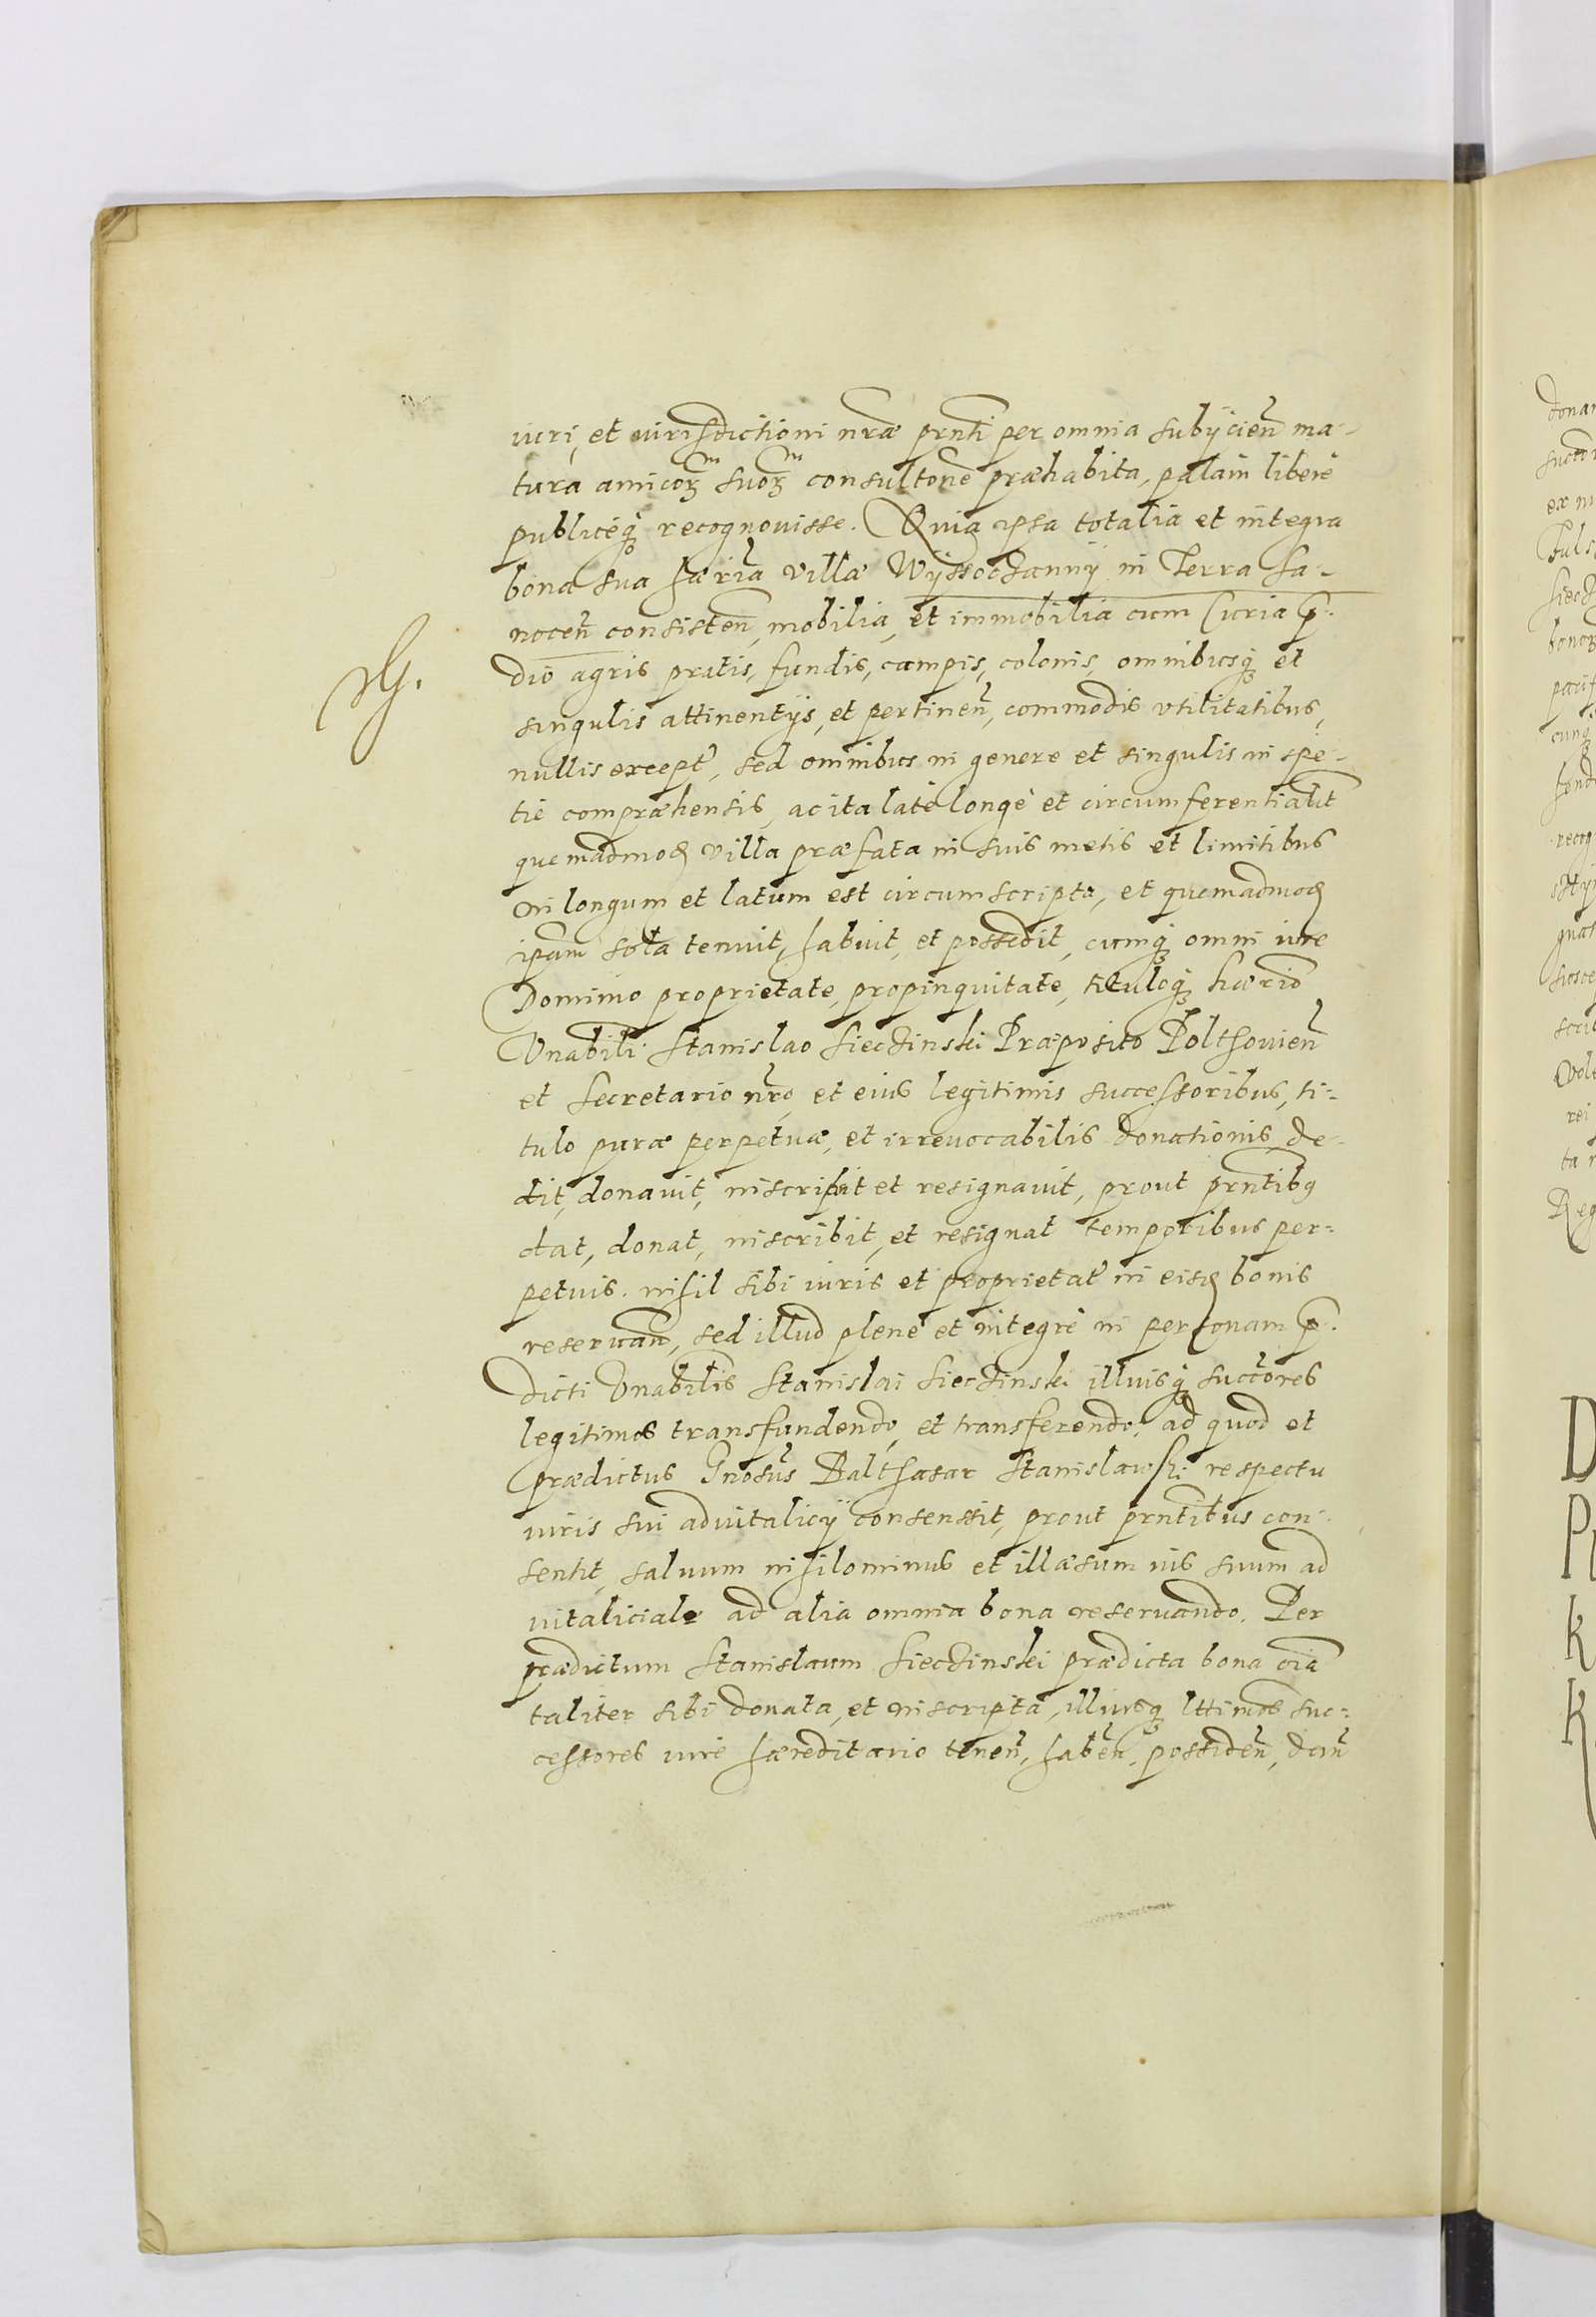 iuri, et iurisdictioni nrae prnti per omnia subÿcien̄ ma-
tura amicorum suorum consultone praehabita, palam libere
publiceq̃ recognouisse. Quia ipsa totalia et integra
bona sua haeria villae Wÿssoczannÿ in Terra Sa-
nocen̄ consisten̄, mobilia, et immobilia cum Curia p̄-
dio agris pratis, fundis, campis, colonis, omnibusq̃ et
singulis attinentÿs, et pertinen̄, commodis vtilitatibus,
nullis except', sed omnibus in genere et singulis in spe-
tie compraehensis, ac ita late longe et circumferentialit̄
quemadmod villa praefata in suis metis et limitibus
in longum et latum est circumscripta, et quemadmod
ipam sola tenuit, habuit, et possedit, cumq̃ omni iure
Dominio proprietate, propinquitate, tituloq̃ haerio
Vnabili Stanislao Sieczinski Praeposito Polthouien̄
et Secretario nro, et eius legitimis successoribus, ti-
tulo purae perpetuae, et irreuocabilis donationis de-
dit, donauit, inscripsit et resignauit, prout prntibq
dat, donat, inscribit, et resignat temporibus per-
petuis. nihil sibi iuris et proprietat' in eisd bonis
reseruan̄, sed illud plene et integre in personam p̄-
dicti Vnabilis Stanislai Sieczinski illiusq̃ succores
legitimos transfundendo, et transferendo, ad quod et
praedictus Gnosus Balthasar Stanislawski respectu
iuris sui aduitalicÿ consensit, prout prntibus con-
sentit, saluum nihilominus et illaesum ius suum ad
uitaliciale ad alia omnia bona reseruando. Per
praedictum Stanislaum Sieczinski praedicta bona oia
taliter sibi donata, et inscripta, illiusq̃ lttimos suc-
cessores iure haereditario tenen̄, haben̄, possiden̄, dan̄